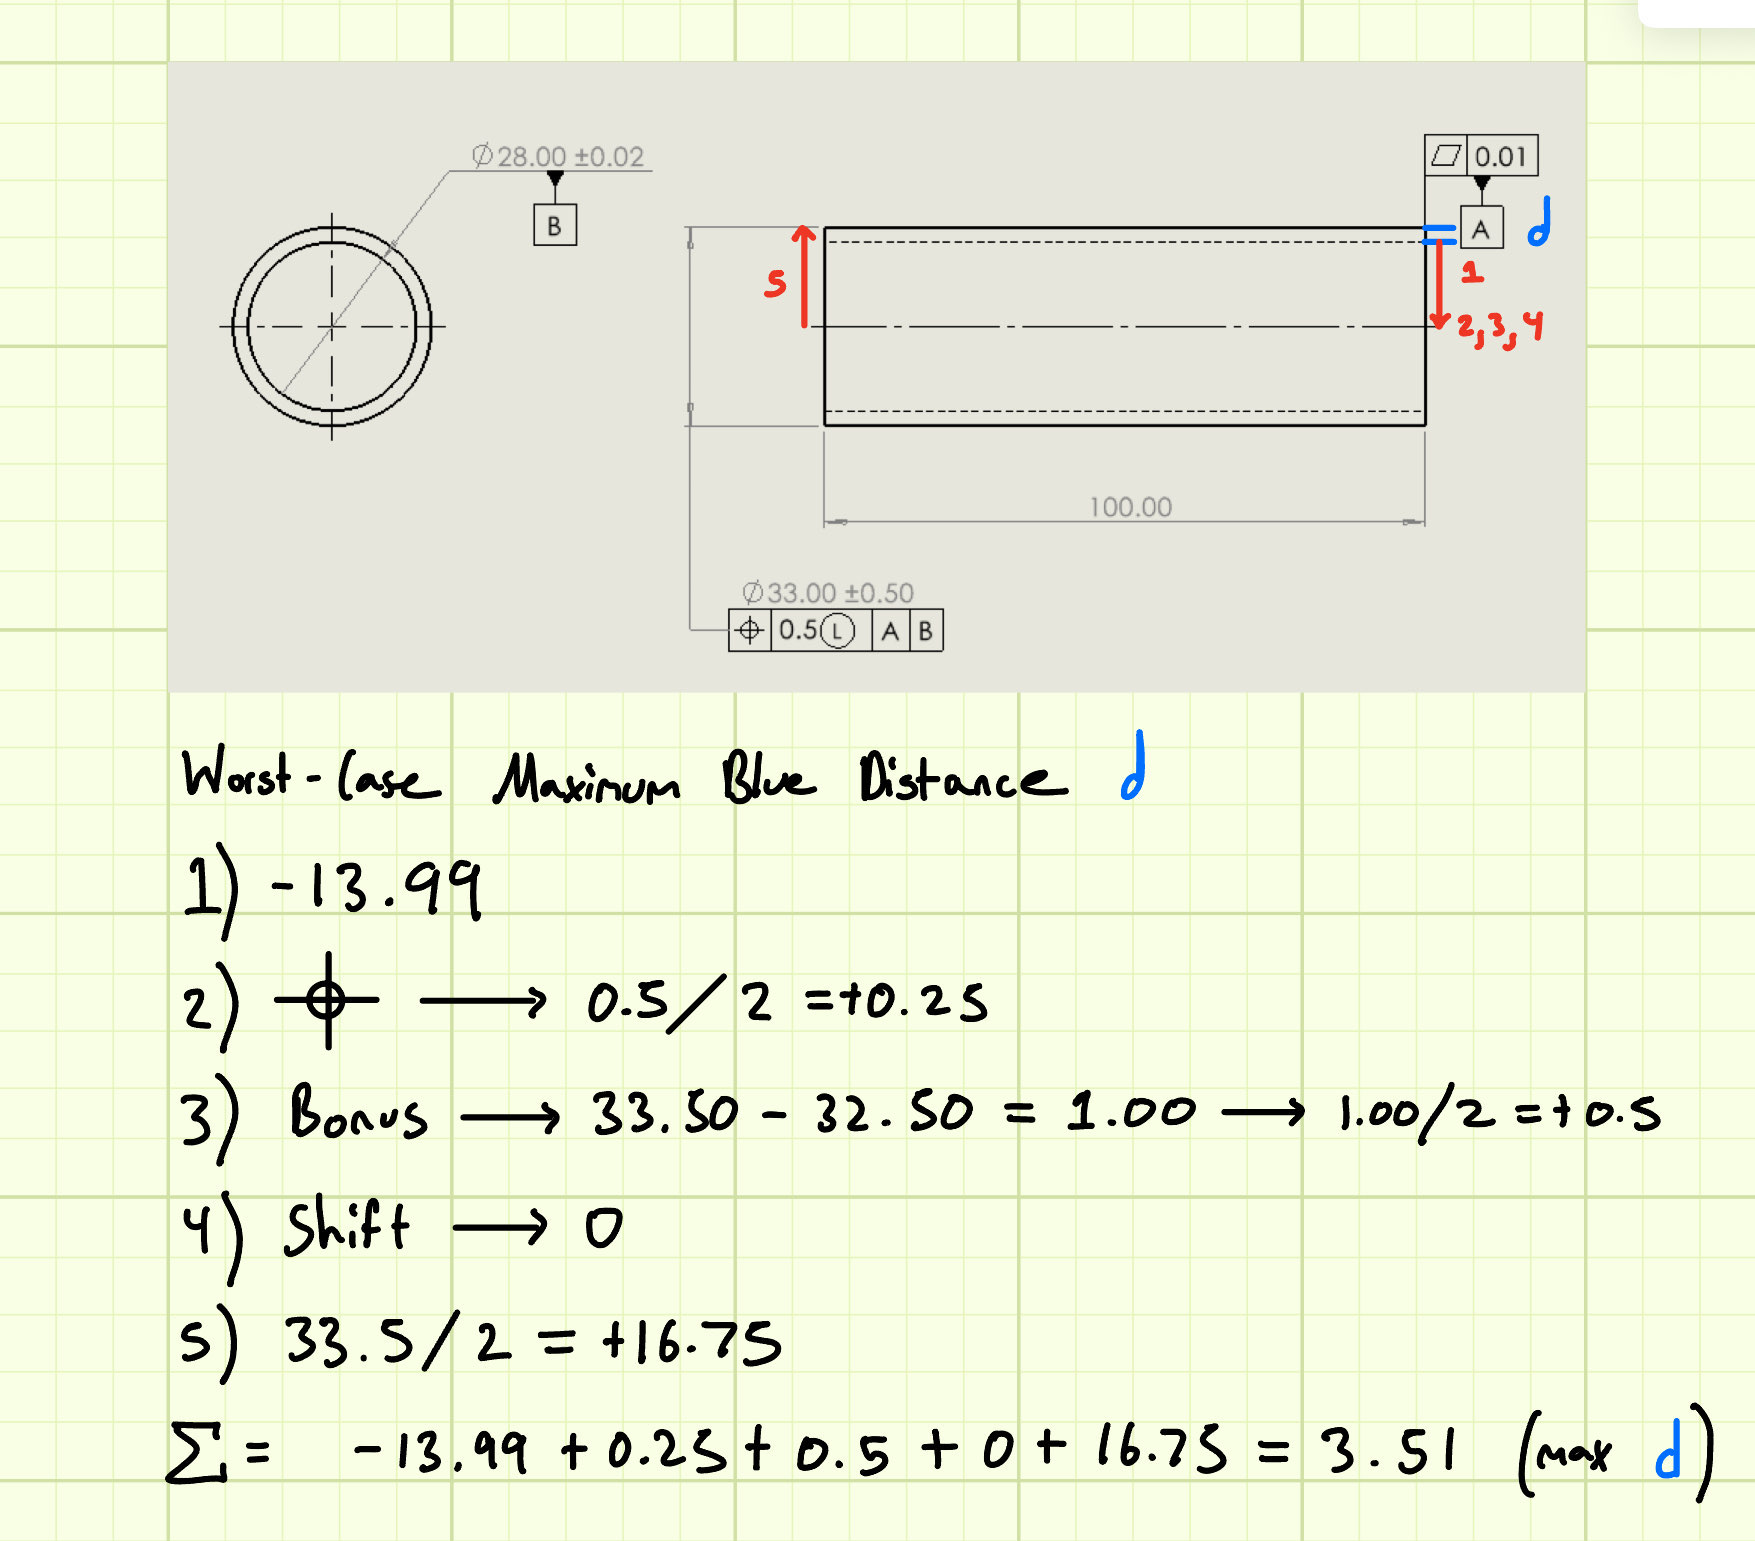 ⌀28.00 ±0.02
B
⏥ 0.01
A
d
5
1
2,3,4
100.00
⌀33.00 ±0.50
⌖ 0.5Ⓛ A B
Worst-Case Maximum Blue Distance d
1) -13.99
2) ⌖ → 0.5/2 =+0.25
3) Bonus → 33.50 - 32.50 = 1.00 → 1.00/2 =+0.5
4) Shift → 0
5) 33.5/2 = +16.75
Σ = -13.99 + 0.25 + 0.5 + 0 + 16.75 = 3.51 (max d)